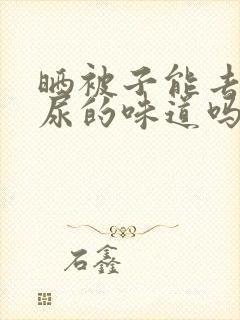 晒被子能去
尿的味道吗
石鑫